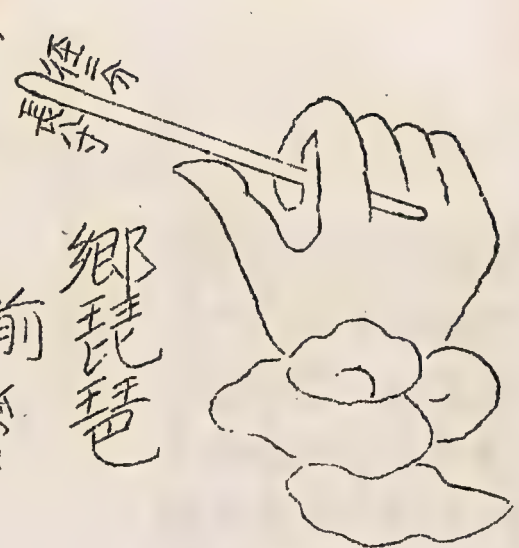 徑三分
長六寸
鄕琵琶
前